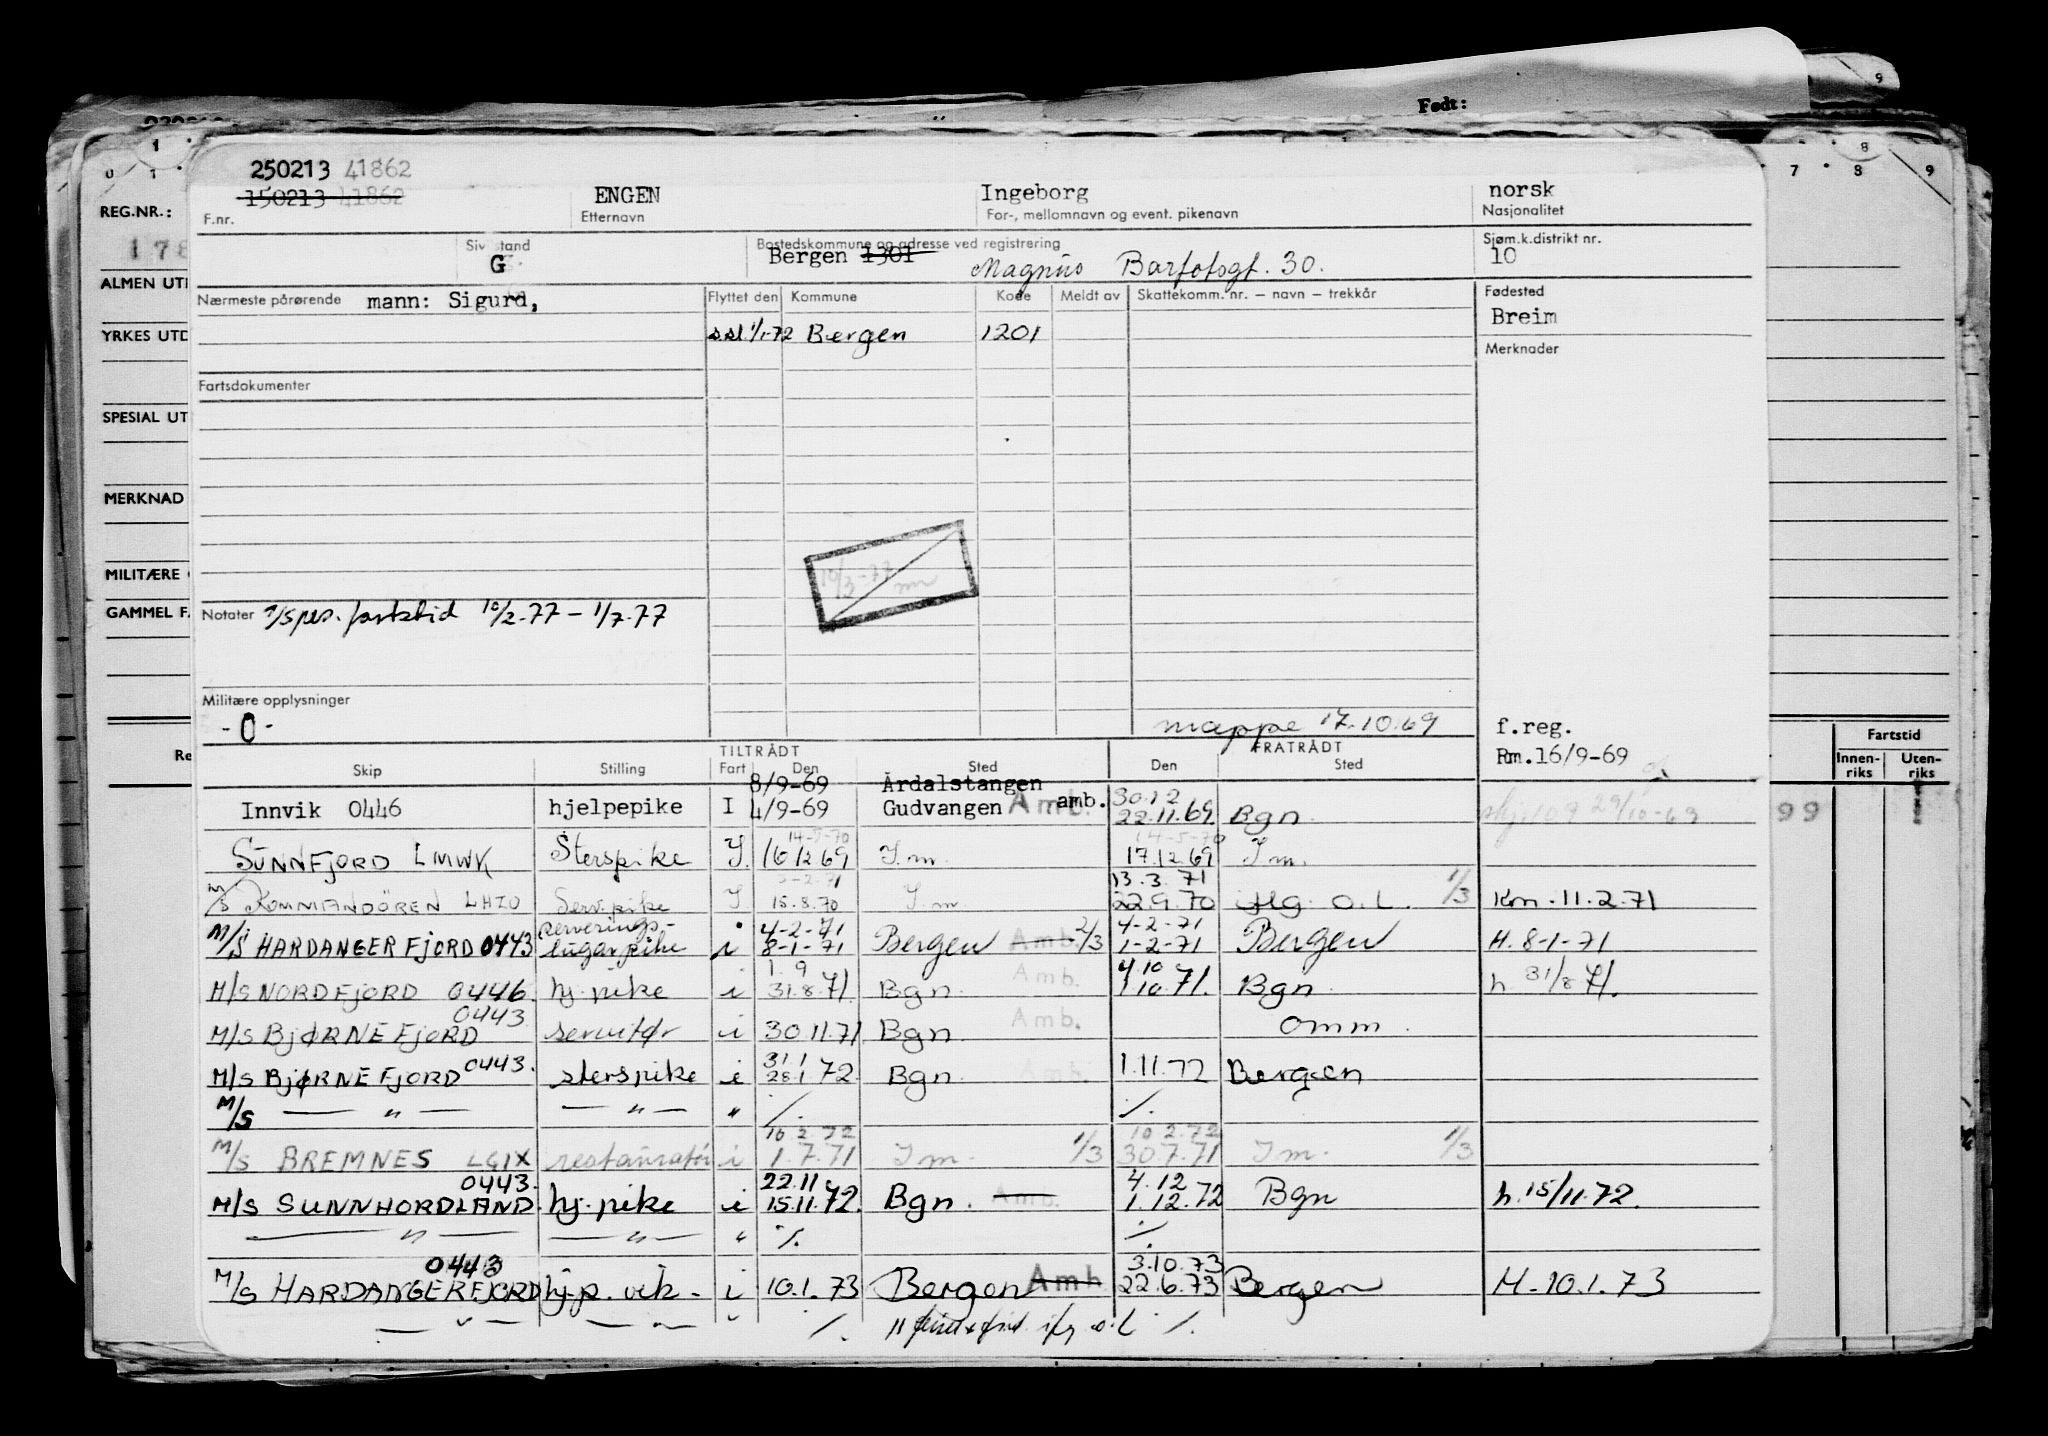 Født:
9
1
8
0 1
7 8 9
REG.NR.:
178
ALMEN UTD
YRKES UTD
SPESIAL UT
MERKNAD
MILITÆRE
GAMMEL F
Re
Fartstid
Innen-riks Uten-riks
99
250213 41862
150213 41862
ENGEN Ingeborg norsk
F.nr. Etternavn For-, mellomnavn og event. pikenavn Nasjonalitet
Sivilstand Bostedskommune og adresse ved registrering Sjøm.k.distrikt nr.
G Bergen 1301 Magnus Barfotsgt. 30. 10
Nærmeste pårørende mann: Sigurd, Flyttet den Kommune Kode Meldt av Skattekomm. nr. – navn – trekkår Fødested
Breim
ssl 1/1-72 Bergen 1201
Merknader
Fartsdokumenter
10/3-77
Notater fartstid 10/2-77 – 1/7-77
Militære opplysninger
-0-
mappe 17.10.69 f.reg.
TILTRÅDT FRATRÅDT
Rm.16/9-69
Skip Stilling Fart Den Sted Den Sted
8/9-69 Årdalstangen 30.12
Innvik 0446 hjelpepike I 4/9-69 Gudvangen Amb. amb. 22.11.69. Bgn. 29/10-69
14-5-70 14-5-70
SUNNFJORD LMWK Sterspike I. 16/12 69 I m. 17.12.69 I m.
5-2-71 13.3.71
M/S KOMMANDØREN LHZO Serv.pike I 15.8.70 I m 22.9.70 iflg. o.l. 1/3 Km. 11.2.71
serverings- 4-2-71 4-2-71
M/S HARDANGERFJORD 0443 lugarpike i 8-1-71 Bergen Amb. 2/3 1-2-71 Bergen H. 8-1-71
1.9 4.10
M/S NORDFJORD 0446. hj.pike i 31.8.71. Bgn. Amb. 1.10.71. Bgn. h. 31/8 71.
0443
M/S BJØRNEFJORD servitør i 30.11.71 Bgn. Amb. omm.
31.1
M/S BJØRNEFJORD 0443. sterspike i 28.1.72. Bgn. Amb. 1.11.72 Bergen
M/S — " — — " — " ./. ./.
10.2.72 10.2.72
M/S BREMNES LGIX restauratør i 1.7.71 I m. 1/3 30.7.71 I m. 1/3
0443. 22.11 4.12
M/S SUNNHORDLAND. hj.pike i 15.11.72. Bgn. Amb. 1.12.72 Bgn h. 15/11.72.
— " — — " — " ./. ./.
0443 3.10.73
M/S HARDANGERFJORD hj.p. vik. i 10.1.73 Bergen Amb 22.6.73 Bergen H. 10.1.73
— " — — " — " ./. o.l ./.